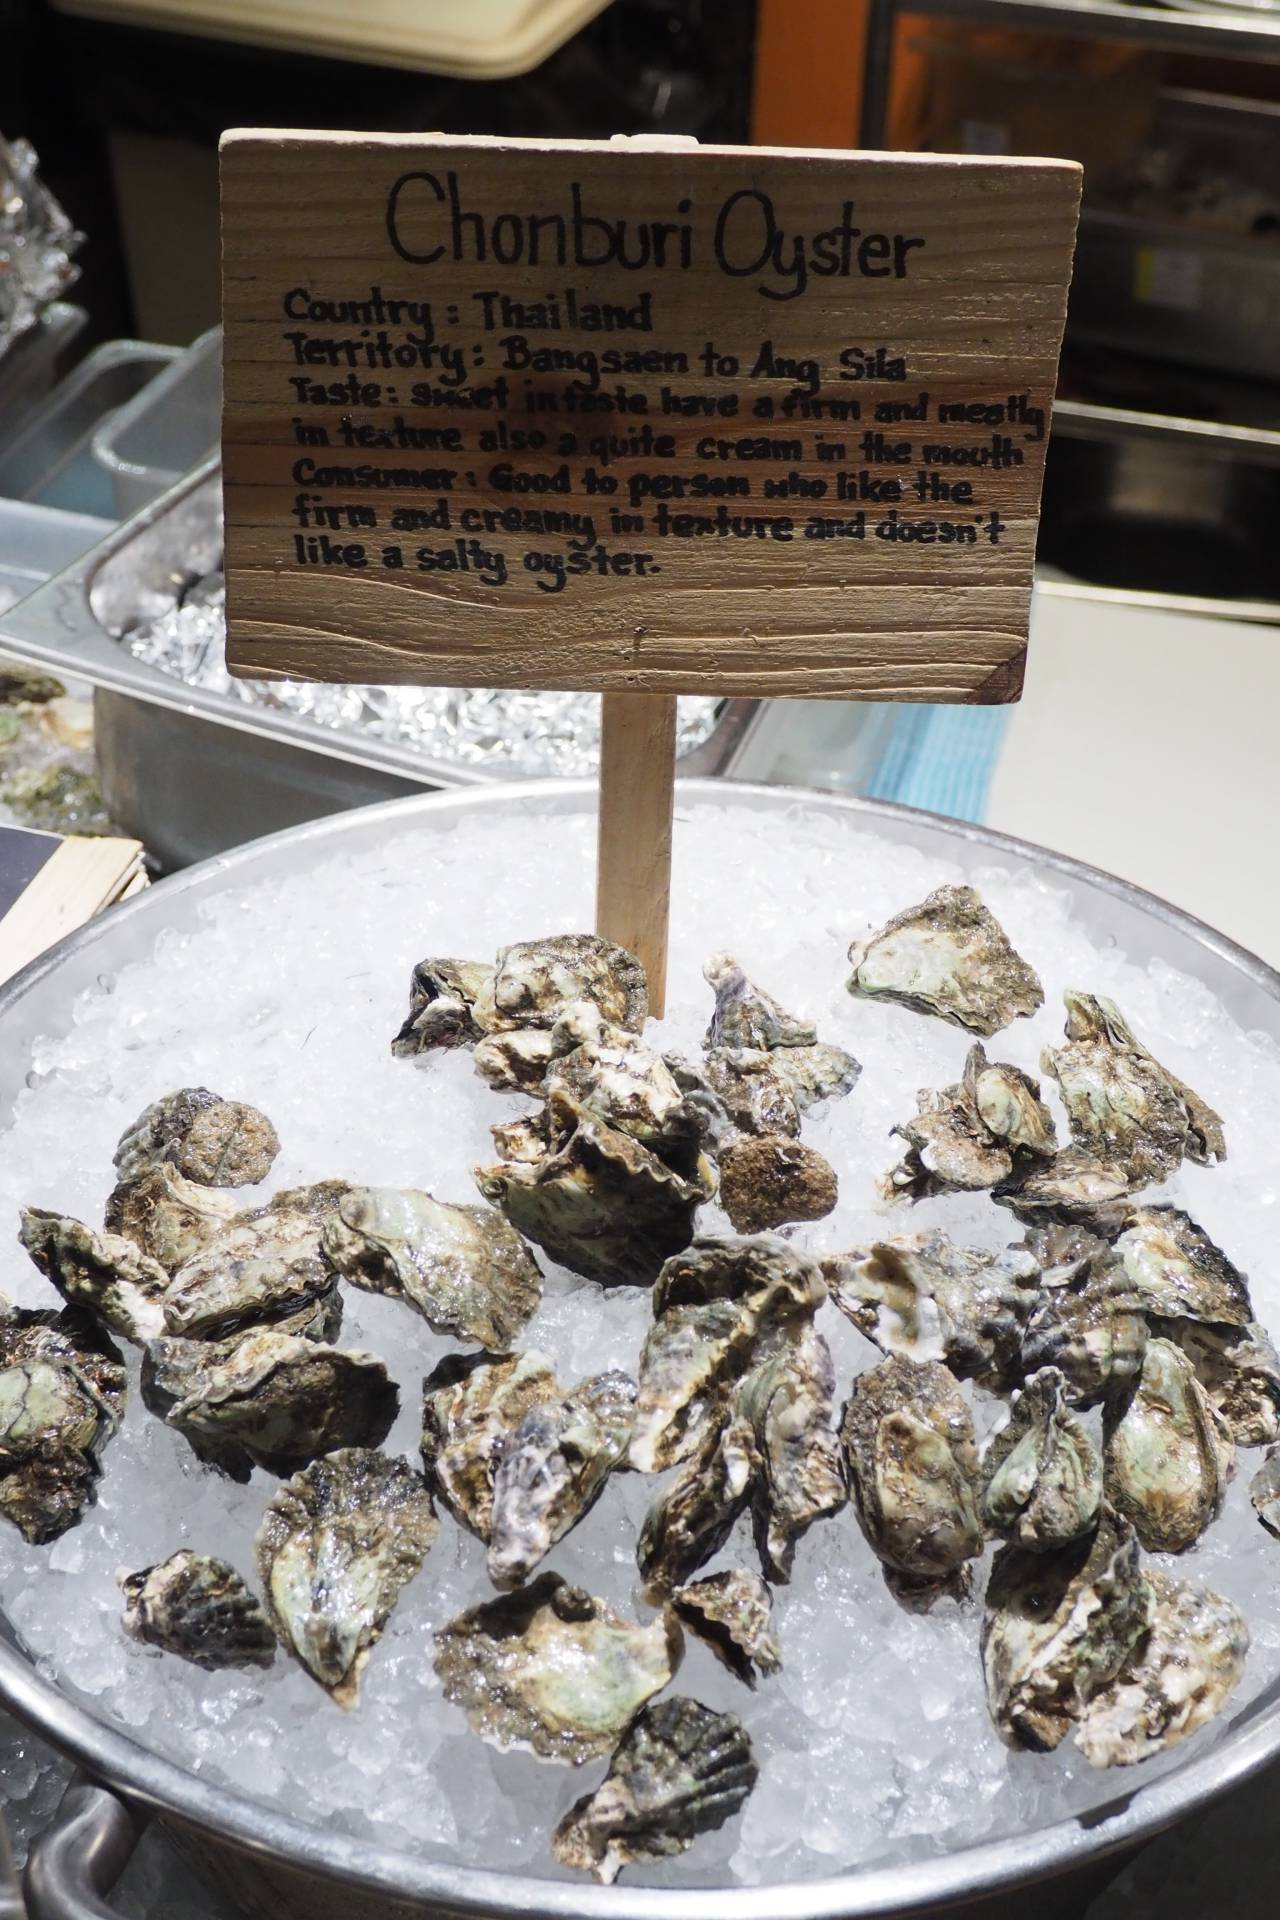 Chonburi Oyster
Country : Thailand
Territory : Bangsaen to Ang Sila
Taste : sweet in taste have a firm and meatly
in texture also a quite cream in the mouth
Consumer : Good to person who like the
firm and creamy in texture and doesn't
like a salty oyster.